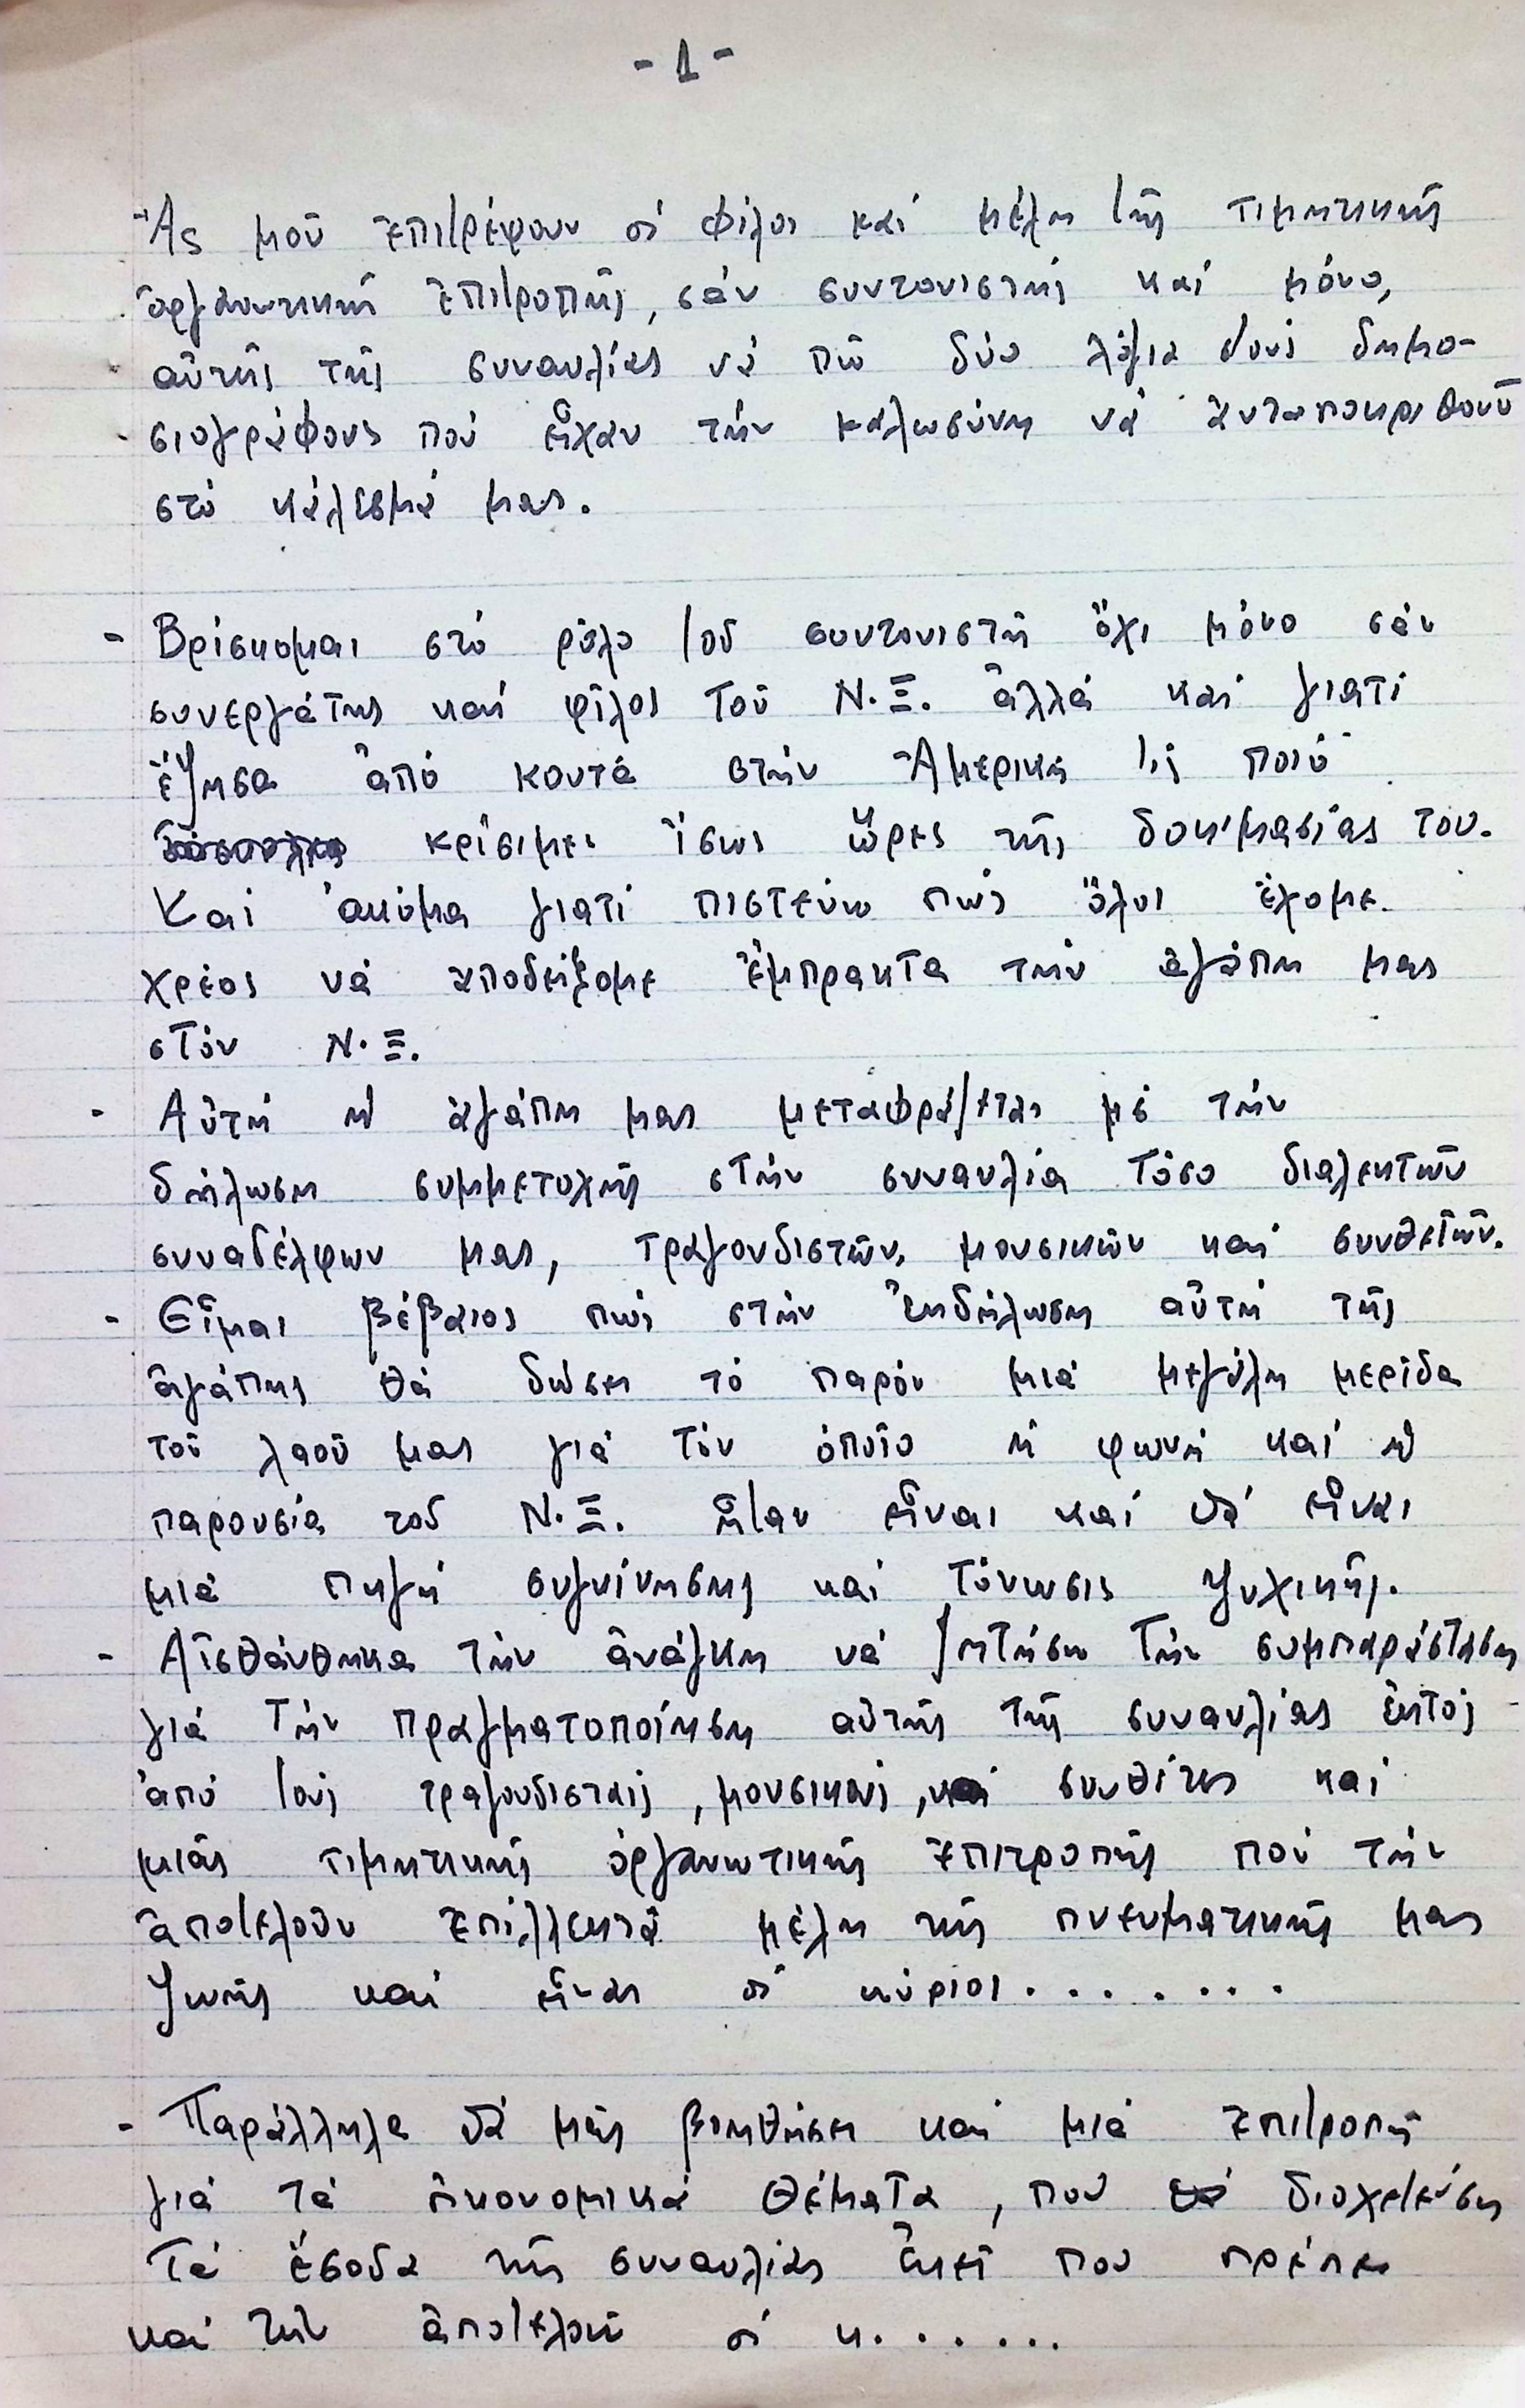 - 1 -
Ἄς μοῦ ἐπιτρέψουν οἱ φίλοι καί μέλη τῆς τιμητικῆς
ὀργανωτικῆς ἐπιτροπῆς, σάν συντονιστής καί μόνο,
αὐτῆς τῆς συναυλίας νά πῶ δύο λόγια στούς δημο-
σιογράφους πού εἶχαν τήν καλωσύνη νά ἀνταποκριθοῦν
στό κάλεσμά μας.
- Βρίσκομαι στό ρόλο τοῦ συντονιστῆ ὄχι μόνο σάν
συνεργάτης καί φίλος τοῦ Ν.Ξ. ἀλλά καί γιατί
ἔζησα ἀπό κοντά στήν Ἀμερική τίς ποιό
κρίσιμες ἴσως ὧρες τῆς δοκιμασίας του.
Καί ἀκόμα γιατί πιστεύω πώς ὅλοι ἔχομε
χρέος νά ἀποδείξομε ἔμπρακτα τήν ἀγάπη μας
στόν Ν.Ξ.
- Αὐτή ἡ ἀγάπη μας μεταφράζεται μέ τήν
δήλωση συμμετοχῆς στήν συναυλία τόσο διαλεκτῶν
συναδέλφων μας, τραγουδιστῶν, μουσικῶν καί συνθετῶν.
- Εἶμαι βέβαιος πώς στήν ἐκδήλωση αὐτή τῆς
ἀγάπης θά δώσει τό παρόν μιά μεγάλη μερίδα
τοῦ λαοῦ μας γιά τόν ὁποῖο ἡ φωνή καί ἡ
παρουσία τοῦ Ν.Ξ. ἦταν εἶναι καί θά εἶναι
μιά πηγή συγκίνησης καί τόνωσις ψυχικῆς.
- Αἰσθάνθηκα τήν ἀνάγκη νά ζητήσω τήν συμπαράσταση
γιά τήν πραγματοποίηση αὐτῆς τῆς συναυλίας ἐκτός
ἀπό τούς τραγουδιστές, μουσικούς, καί συνθέτες καί
μιᾶς τιμητικῆς ὀργανωτικῆς ἐπιτροπῆς πού τήν
ἀποτελοῦν ἐπίλλεκτα μέλη τῆς πνευματικῆς μας
ζωῆς καί εἶναι οἱ κύριοι.......
- Παράλληλα θά μᾶς βοηθήσει καί μιά ἐπιτροπή
γιά τά οἰκονομικά θέματα, πού θά διοχετεύσει
τά ἔσοδα τῆς συναυλίας ἐκεῖ που πρέπει
καί τήν ἀποτελοῦν οἱ κ.......